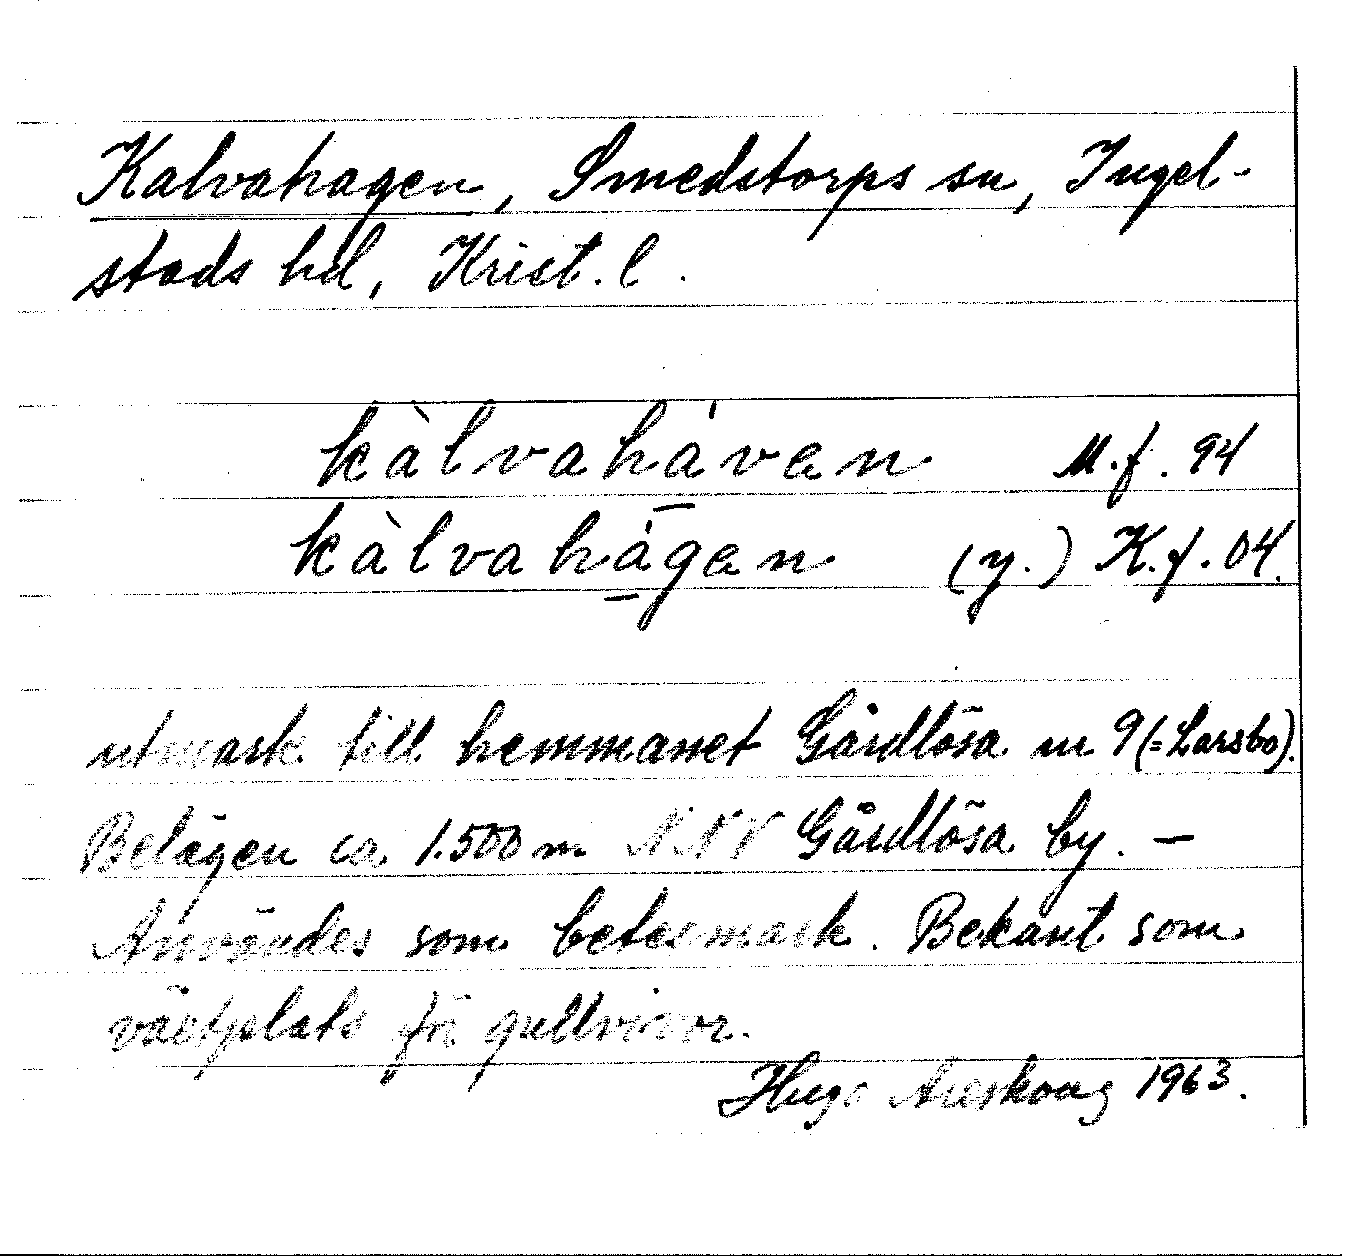 Kalvahagen, Smedstorps sn, Ingel-
stads hd, Krist. l.
kàlvahá̱ven M.f. 94
kàlvahá̱gen (y.) K.f. 04.
utmark till hemmanet Gårdlösa nr 9 (=Larsbo).
Belägen ca 1.500 m NNV Gårdlösa by. —
Användes som betesmark. Bekant som
växtplats för gullvivor.
Hugo Areskoug 1963.